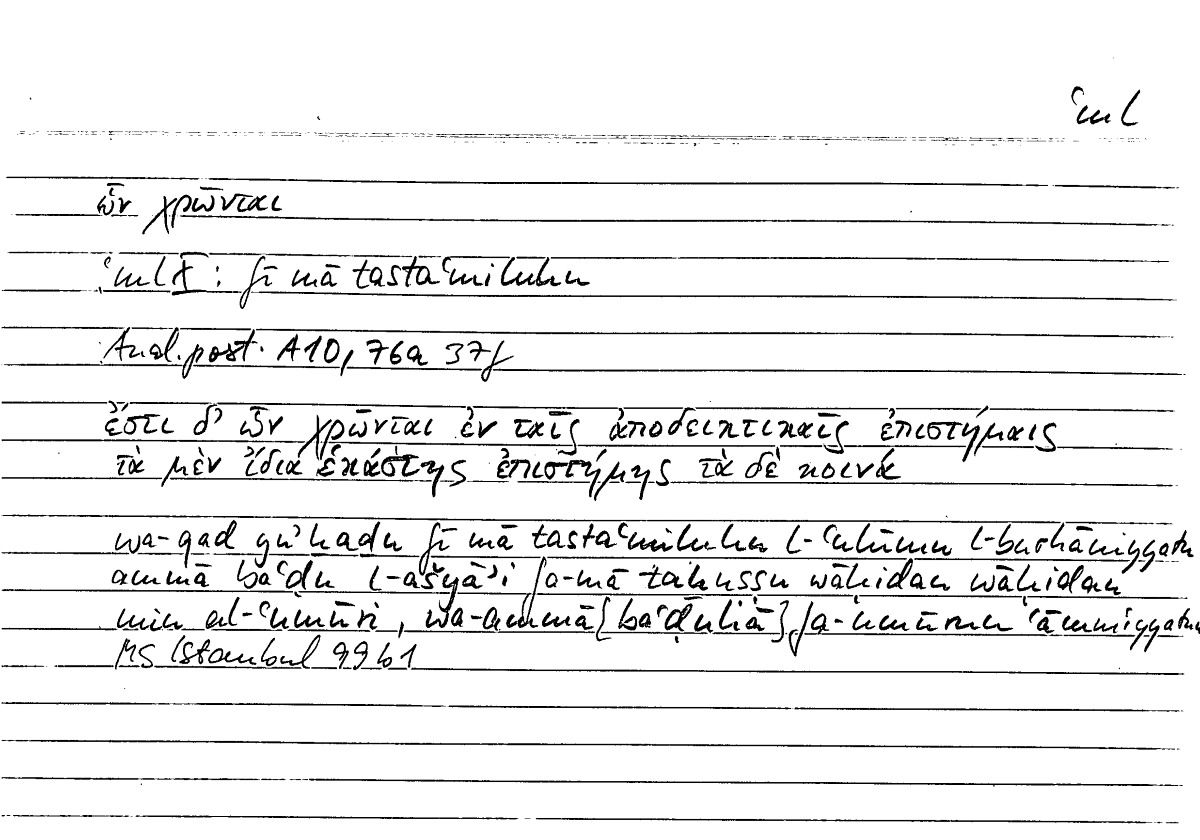 ʿml
ὧν χρῶνται
ʿml X : fī mā tastaʿmiluhu
Anal. post. A10, 76a 37f
ἔστι δ' ὧν χρῶνται ἐν ταῖς ἀποδεικτικαῖς ἐπιστήμαις
τὰ μὲν ἴδια ἑκάστης ἐπιστήμης τὰ δὲ κοινά
wa-qad yuʾḫaḏu fī mā tastaʿmiluhu l-ʿulūmu l-burhāniyyatu
ammā baʿḍu l-ašyāʾi fa-mā taḫuṣṣu wāḥidan wāḥidan
min al-ʿumūri, wa-ammā [baʿḍuhā] fa-umūrun ʿāmmiyyatun
MS Istanbul 99b1